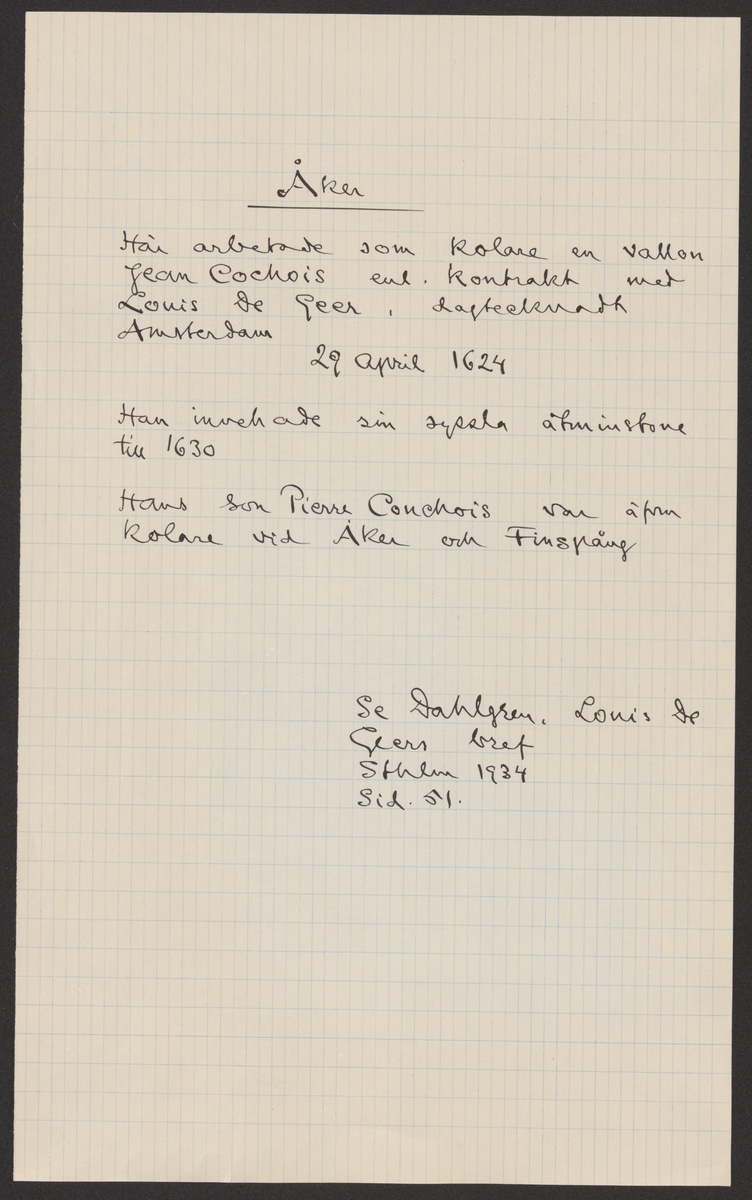 Åker
Här arbetade som kolare en vallon
Jean Cochois enl. kontrakt med
Louis De Geer, dagtecknadt
Amsterdam
29 April 1624
Han innehade sin syssla åtminstone
till 1630
Hans son Pierre Conchois var äfven
kolare vid Åker och Finspång
Se Dahlgren, Louis De
Geers bref
Sthlm 1934
Sid. 51.